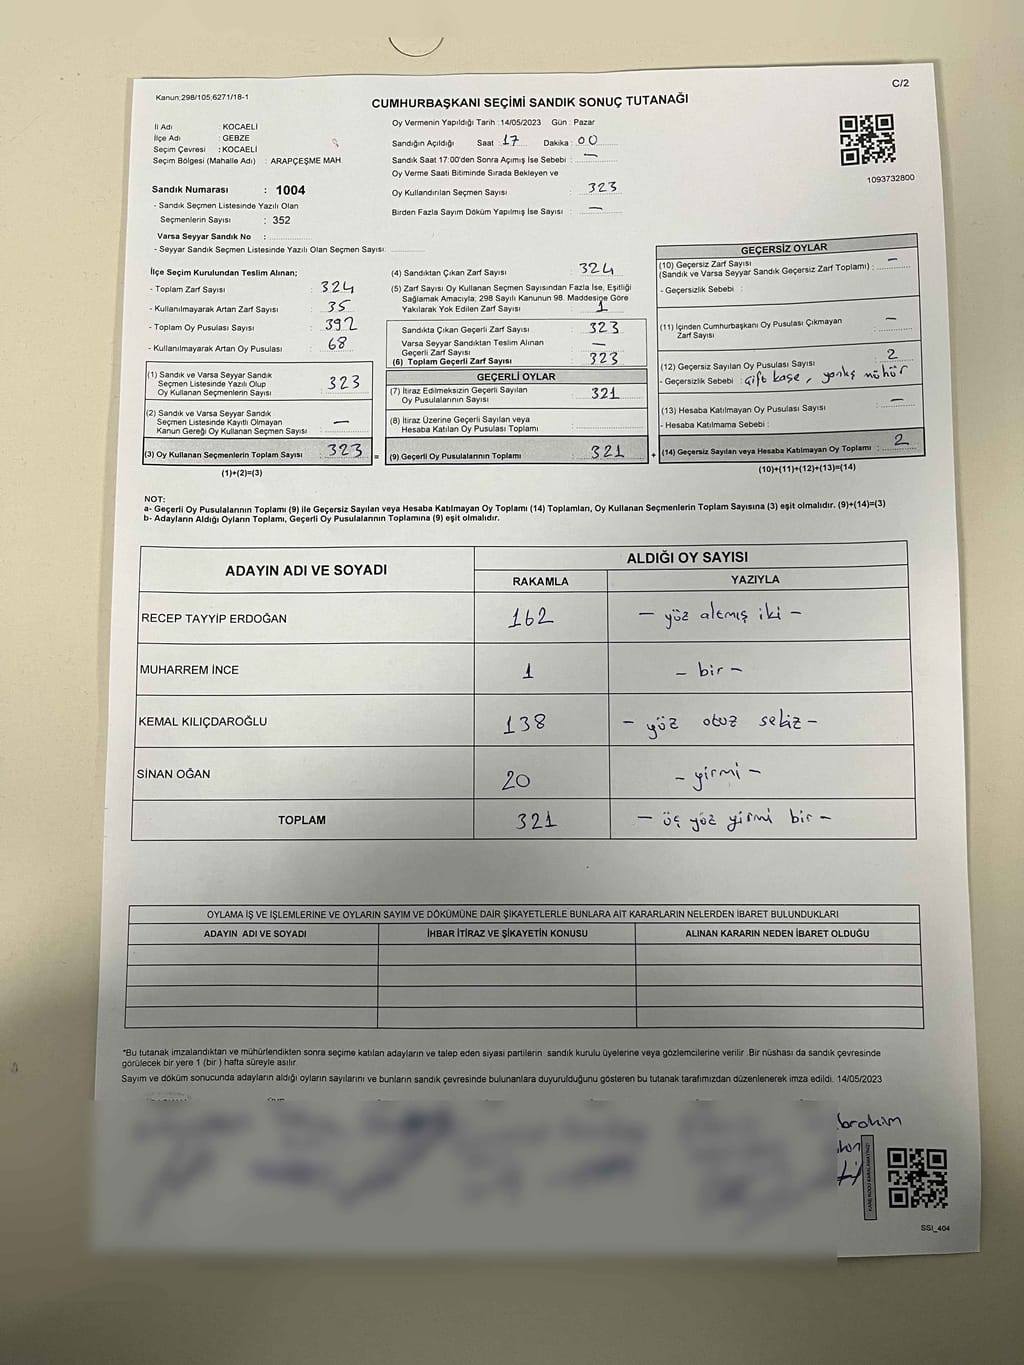 C/2
Kanun:298/105;6271/18-1
CUMHURBAŞKANI SEÇİMİ SANDIK SONUÇ TUTANAĞI
İl Adı : KOCAELİ
İlçe Adı : GEBZE
Seçim Çevresi : KOCAELİ
Seçim Bölgesi (Mahalle Adı) : ARAPÇEŞME MAH
Sandık Numarası : 1004
- Sandık Seçmen Listesinde Yazılı Olan
Seçmenlerin Sayısı : 352
Varsa Seyyar Sandık No :
- Seyyar Sandık Seçmen Listesinde Yazılı Olan Seçmen Sayısı:
Oy Vermenin Yapıldığı Tarih : 14/05/2023 Gün : Pazar
Sandığın Açıldığı Saat : 17 Dakika : 00
Sandık Saat 17:00'den Sonra Açımış İse Sebebi : —
Oy Verme Saati Bitiminde Sırada Bekleyen ve
Oy Kullandırılan Seçmen Sayısı : 323
Birden Fazla Sayım Döküm Yapılmış İse Sayısı : —
1093732800
İlçe Seçim Kurulundan Teslim Alınan;
- Toplam Zarf Sayısı : 324
- Kullanılmayarak Artan Zarf Sayısı : 35
- Toplam Oy Pusulası Sayısı : 392
- Kullanılmayarak Artan Oy Pusulası : 68
(1) Sandık ve Varsa Seyyar Sandık
Seçmen Listesinde Yazılı Olup
Oy Kullanan Seçmenlerin Sayısı : 323
(2) Sandık ve Varsa Seyyar Sandık
Seçmen Listesinde Kayıtlı Olmayan
Kanun Gereği Oy Kullanan Seçmen Sayısı : —
(3) Oy Kullanan Seçmenlerin Toplam Sayısı : 323 =
(1)+(2)=(3)
(4) Sandıktan Çıkan Zarf Sayısı : 324
(5) Zarf Sayısı Oy Kullanan Seçmen Sayısından Fazla İse, Eşitliği
Sağlamak Amacıyla; 298 Sayılı Kanunun 98. Maddesine Göre
Yakılarak Yok Edilen Zarf Sayısı : 1
Sandıkta Çıkan Geçerli Zarf Sayısı : 323
Varsa Seyyar Sandıktan Teslim Alınan
Geçerli Zarf Sayısı : —
(6) Toplam Geçerli Zarf Sayısı : 323
GEÇERLİ OYLAR
(7) İtiraz Edilmeksizin Geçerli Sayılan
Oy Pusulalarının Sayısı : 321
(8) İtiraz Üzerine Geçerli Sayılan veya
Hesaba Katılan Oy Pusulası Toplamı :
(9) Geçerli Oy Pusulalarının Toplamı : 321 +
GEÇERSİZ OYLAR
(10) Geçersiz Zarf Sayısı
(Sandık ve Varsa Seyyar Sandık Geçersiz Zarf Toplamı) : —
- Geçersizlik Sebebi :
(11) İçinden Cumhurbaşkanı Oy Pusulası Çıkmayan
Zarf Sayısı : —
(12) Geçersiz Sayılan Oy Pusulası Sayısı : 2
- Geçersizlik Sebebi : Çift kaşe, yanlış mühür
(13) Hesaba Katılmayan Oy Pusulası Sayısı : —
- Hesaba Katılmama Sebebi :
(14) Geçersiz Sayılan veya Hesaba Katılmayan Oy Toplamı : 2
(10)+(11)+(12)+(13)=(14)
NOT:
a- Geçerli Oy Pusulalarının Toplamı (9) ile Geçersiz Sayılan veya Hesaba Katılmayan Oy Toplamı (14) Toplamları, Oy Kullanan Seçmenlerin Toplam Sayısına (3) eşit olmalıdır. (9)+(14)=(3)
b- Adayların Aldığı Oyların Toplamı, Geçerli Oy Pusulalarının Toplamına (9) eşit olmalıdır.
ADAYIN ADI VE SOYADI ALDIĞI OY SAYISI
RAKAMLA YAZIYLA
RECEP TAYYİP ERDOĞAN 162 — yüz altmış iki —
MUHARREM İNCE 1 — bir —
KEMAL KILIÇDAROĞLU 138 — yüz otuz sekiz —
SİNAN OĞAN 20 — yirmi —
TOPLAM 321 — üç yüz yirmi bir —
OYLAMA İŞ VE İŞLEMLERİNE VE OYLARIN SAYIM VE DÖKÜMÜNE DAİR ŞİKAYETLERLE BUNLARA AİT KARARLARIN NELERDEN İBARET BULUNDUKLARI
ADAYIN ADI VE SOYADI İHBAR İTİRAZ VE ŞİKAYETİN KONUSU ALINAN KARARIN NEDEN İBARET OLDUĞU
*Bu tutanak imzalandıktan ve mühürlendikten sonra seçime katılan adayların ve talep eden siyasi partilerin sandık kurulu üyelerine veya gözlemcilerine verilir .Bir nüshası da sandık çevresinde
görülecek bir yere 1 (bir ) hafta süreyle asılır.
Sayım ve döküm sonucunda adayların aldığı oyların sayılarını ve bunların sandık çevresinde bulunanlara duyurulduğunu gösteren bu tutanak tarafımızdan düzenlenerek imza edildi. 14/05/2023
SSI_404